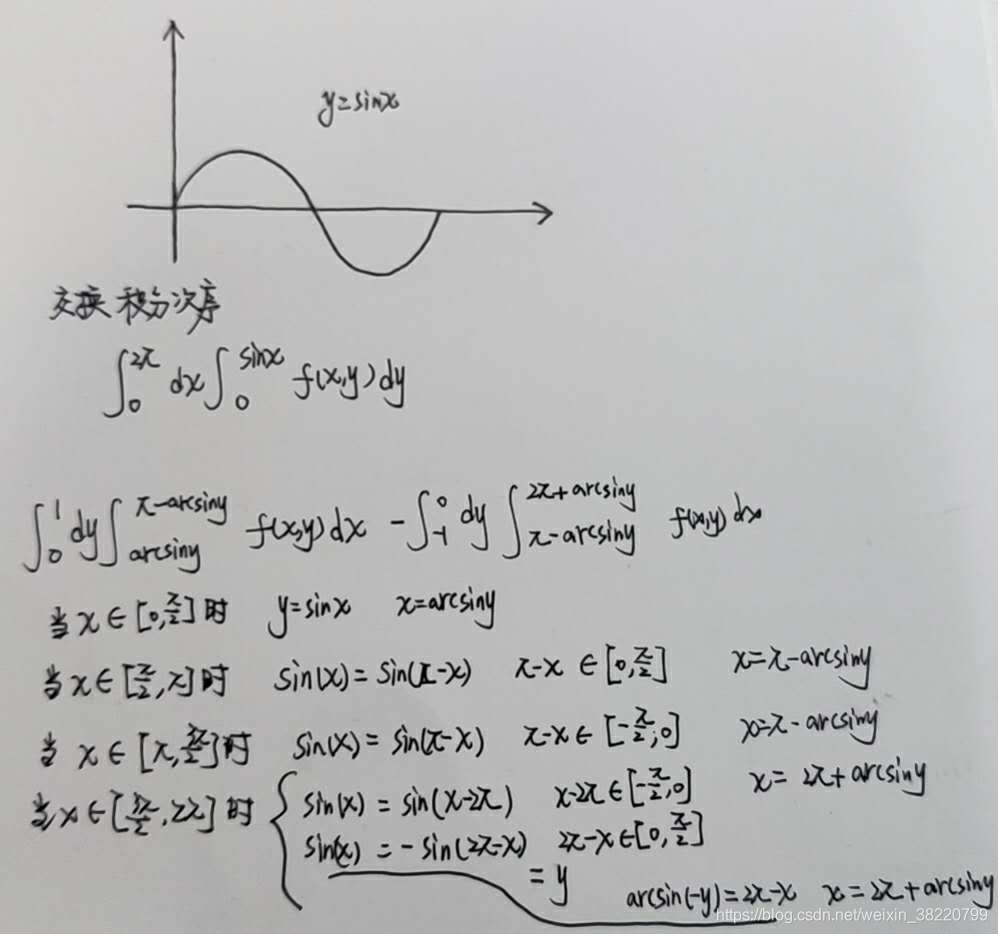 y=sinx
交换积分次序
∫₀^{2π} dx ∫₀^{sinx} f(x,y) dy
∫₀^{1} dy ∫_{arcsiny}^{π-arcsiny} f(x,y) dx - ∫_{-1}^{0} dy ∫_{π-arcsiny}^{2π+arcsiny} f(x,y) dx
当 x∈[0,π/2]时 y=sinx x=arcsiny
当 x∈[π/2,π]时 sin(x)=sin(π-x) π-x∈[0,π/2] x=π-arcsiny
当 x∈[π,3π/2]时 sin(x)=sin(π-x) π-x∈[-π/2,0] x=π-arcsiny
当 x∈[3π/2,2π]时 { sin(x)=sin(x-2π) x-2π∈[-π/2,0] x=2π+arcsiny
sin(x)=-sin(2π-x) 2π-x∈[0,π/2]
=y
arcsin(-y)=2π-x x=2π+arcsiny
https://blog.csdn.net/weixin_38220799